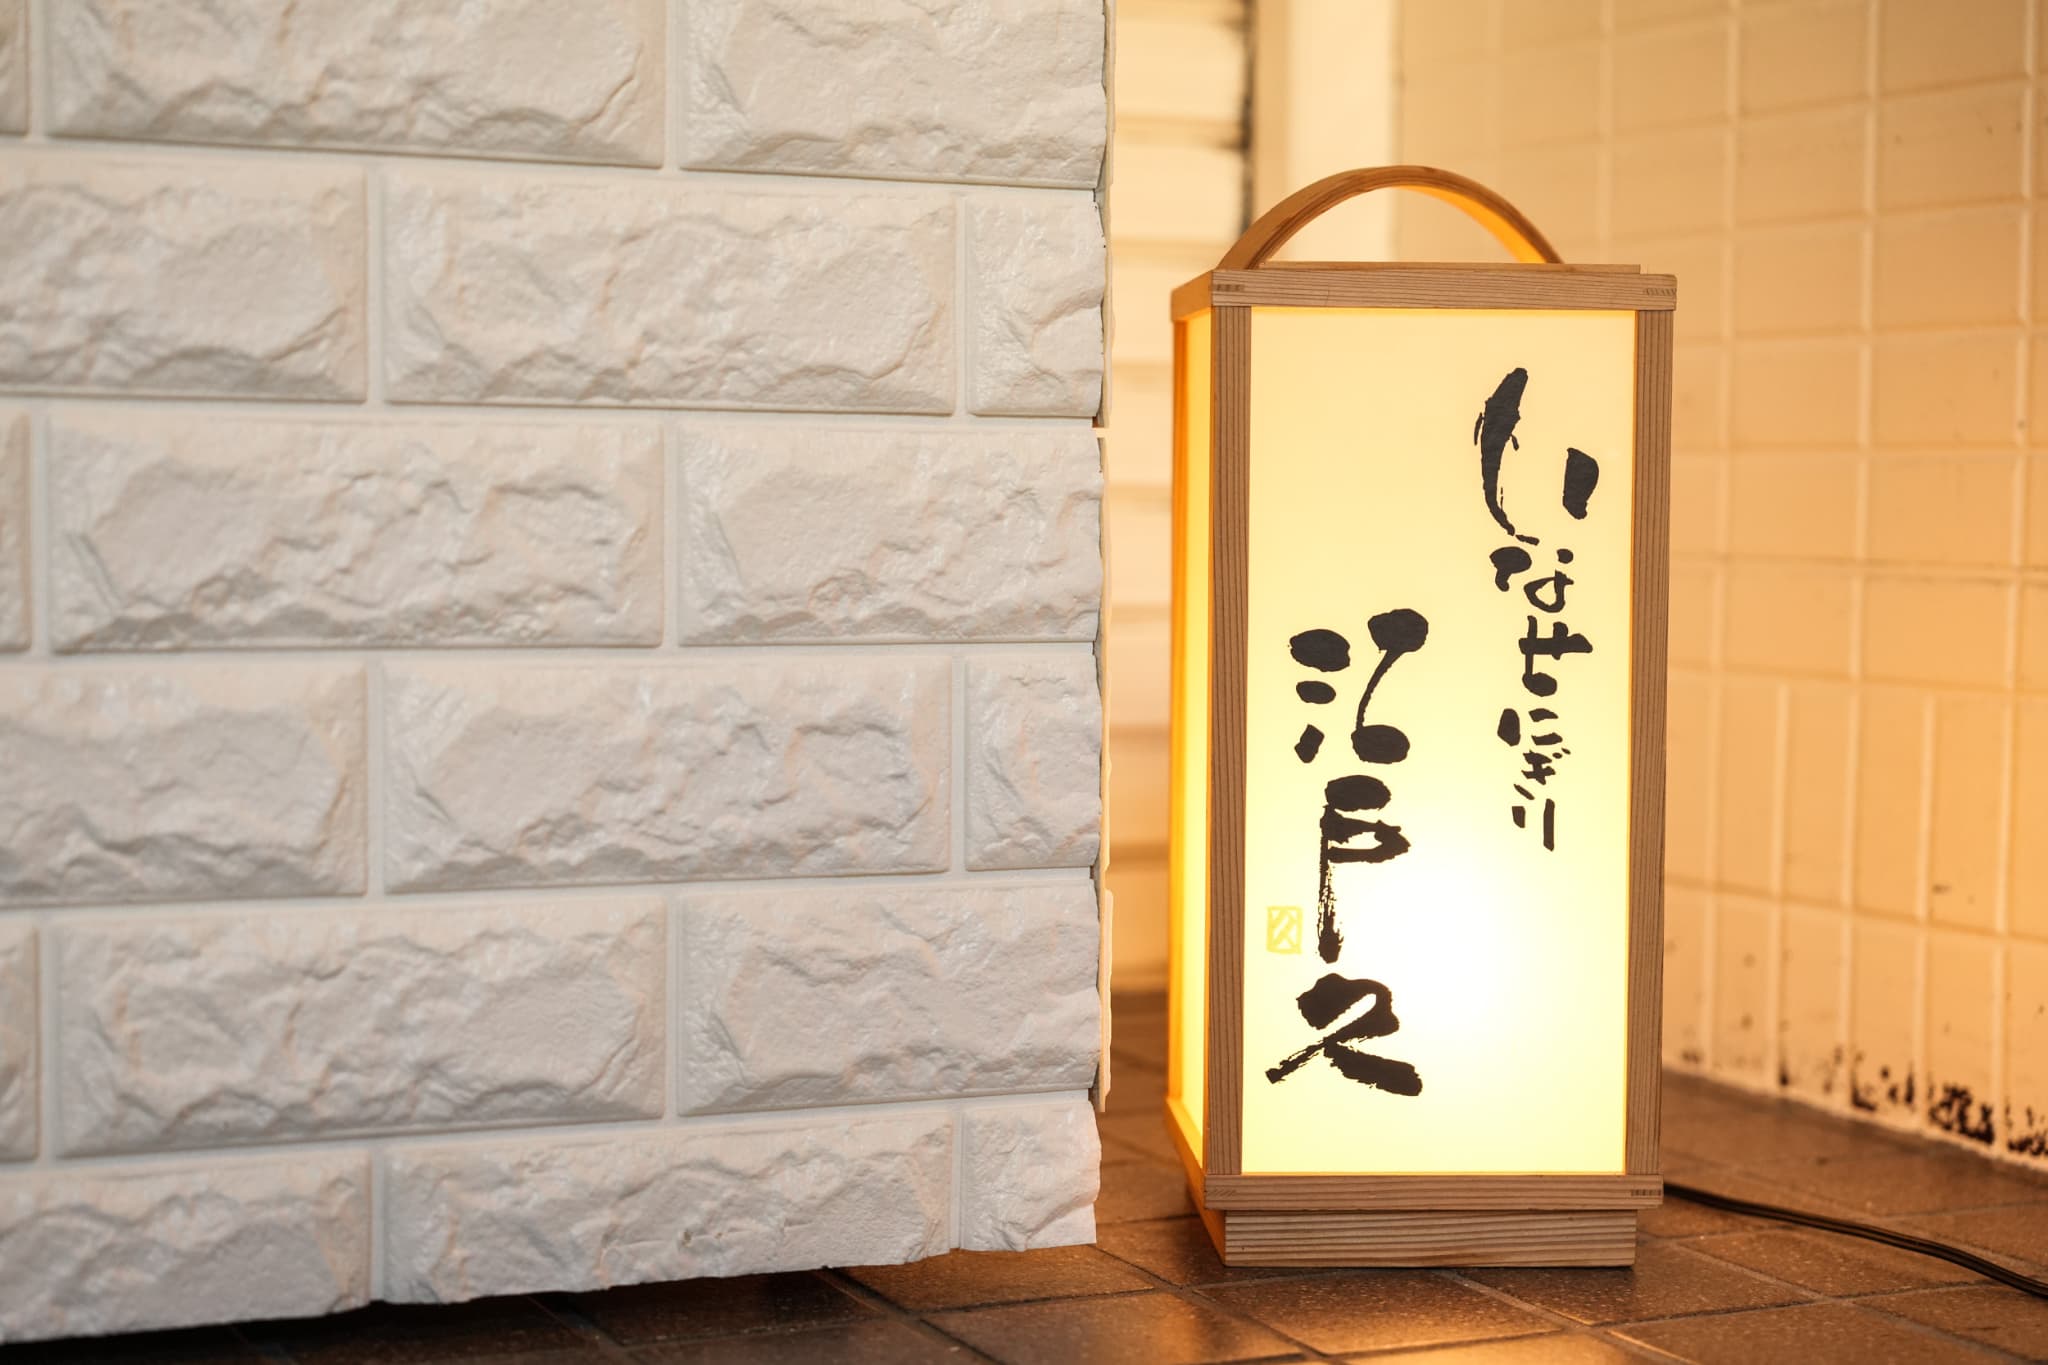 いなせにぎり
江戸久
久